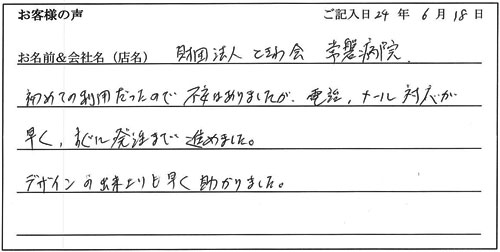 お客様の声 ご記入日 24 年 6 月 18 日
お名前&会社名（店名） 財団法人 ときわ会 常磐病院
初めての利用だったので 不安はありましたが、電話、メール対応が
早く、すぐに発注まで進めました。
デザインの出来上りも早く助かりました。